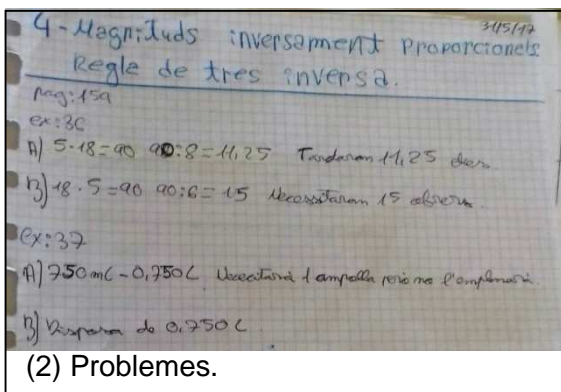 31/5/17
4-Magnituds inversament Proporcionels
Regle de tres inversa.
pag: 159
ex: 36
A) 5·18=90 90:8=11,25 Tardaran 11,25 dies.
B) 18·5=90 90:6=15 Necessitaran 15 obrers.
ex: 37
A) 750mL-0,750L 1 ampolla però no l'omplenarà.
B) Disposa de 0,750L
(2) Problemes.